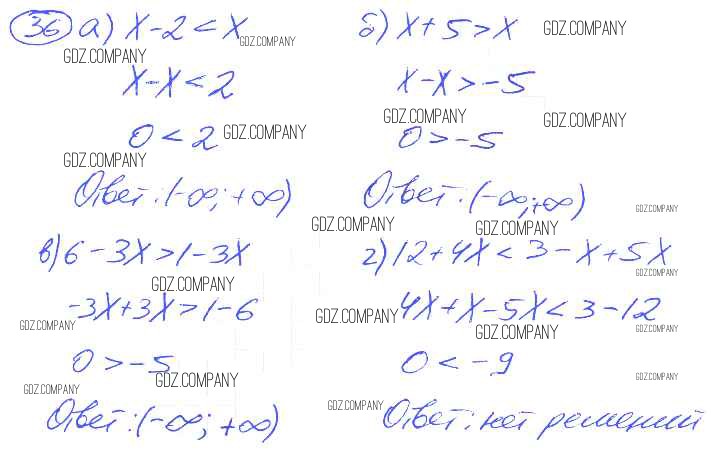 36 а) x - 2 < x б) x + 5 > x GDZ.COMPANY
GDZ.COMPANY
GDZ.COMPANY
x - x < 2 x - x > -5
0 < 2 GDZ.COMPANY GDZ.COMPANY GDZ.COMPANY
0 > -5
GDZ.COMPANY
Ответ: (-∞; +∞) Ответ: (-∞; +∞)
GDZ.COMPANY
GDZ.COMPANY GDZ.COMPANY
в) 6 - 3x > 1 - 3x г) 12 + 4x < 3 - x + 5x
GDZ.COMPANY GDZ.COMPANY
-3x + 3x > 1 - 6 4x + x - 5x < 3 - 12
GDZ.COMPANY GDZ.COMPANY GDZ.COMPANY GDZ.COMPANY
0 > -5 0 < -9
GDZ.COMPANY GDZ.COMPANY
GDZ.COMPANY
Ответ: (-∞; +∞) GDZ.COMPANY Ответ: нет решений